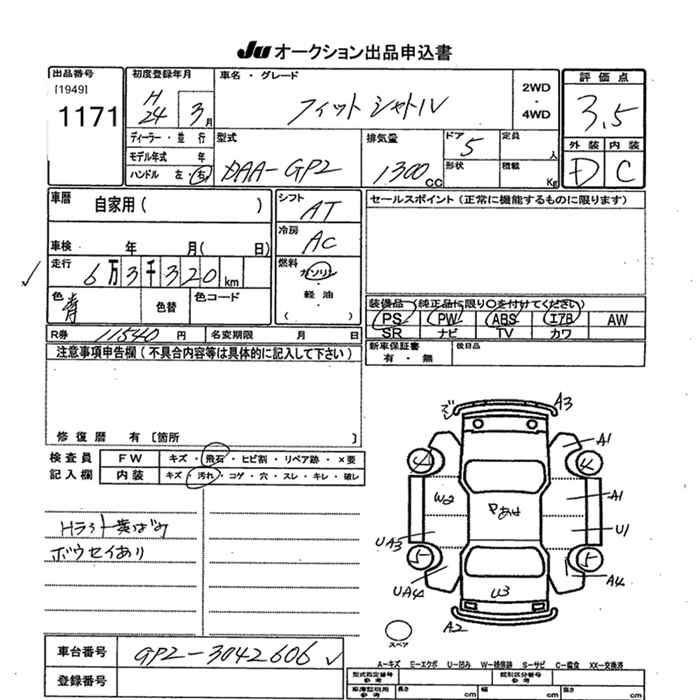 JU オークション出品申込書
出品番号
[1949]
1171
初度登録年月
H
24 3月
車名・グレード
フィットシャトル
2WD
・
4WD
評価点
3.5
外装 内装
D C
ディーラー・並行
モデル年式 年
ハンドル 左・右
型式
DAA-GP2
排気量
1300cc
ドア
5
形状
定員
人
積載
Kg
車暦
自家用( )
車検 年 月( 日)
走行
6万3千320km
色
青
色替
色コード
シフト
AT
冷房
AC
燃料
ガソリン
・
軽油
( )
セールスポイント(正常に機能するものに限ります)
装備品(純正品に限り○を付けてください)
PS PW ABS エアB AW
SR ナビ TV カワ
新車保証書
有・無
後日品
R券 11540円
名変期限 月 日
注意事項申告欄(不具合内容等は具体的に記入して下さい)
修復暦 有〔箇所 〕
検査員
記入欄
FW キズ・飛石・ヒビ割・リペア跡・×要
内装 キズ・汚れ・コゲ・穴・スレ・キレ・破レ
Hライト黄ばみ
ボウセイあり
A3
A1
4
4
W2
A1
UA3
U1
5
5
UA4
U3
A4
A2
スペア
車台番号
GP2-3042606
登録番号
A-キズ E-エクボ U-凹み W-補修跡 S-サビ C-腐食 XX-交換済
型式指定番号
参考
類別区分番号
参考
車庫証明用
参考
長さ cm
幅 cm
高さ cm